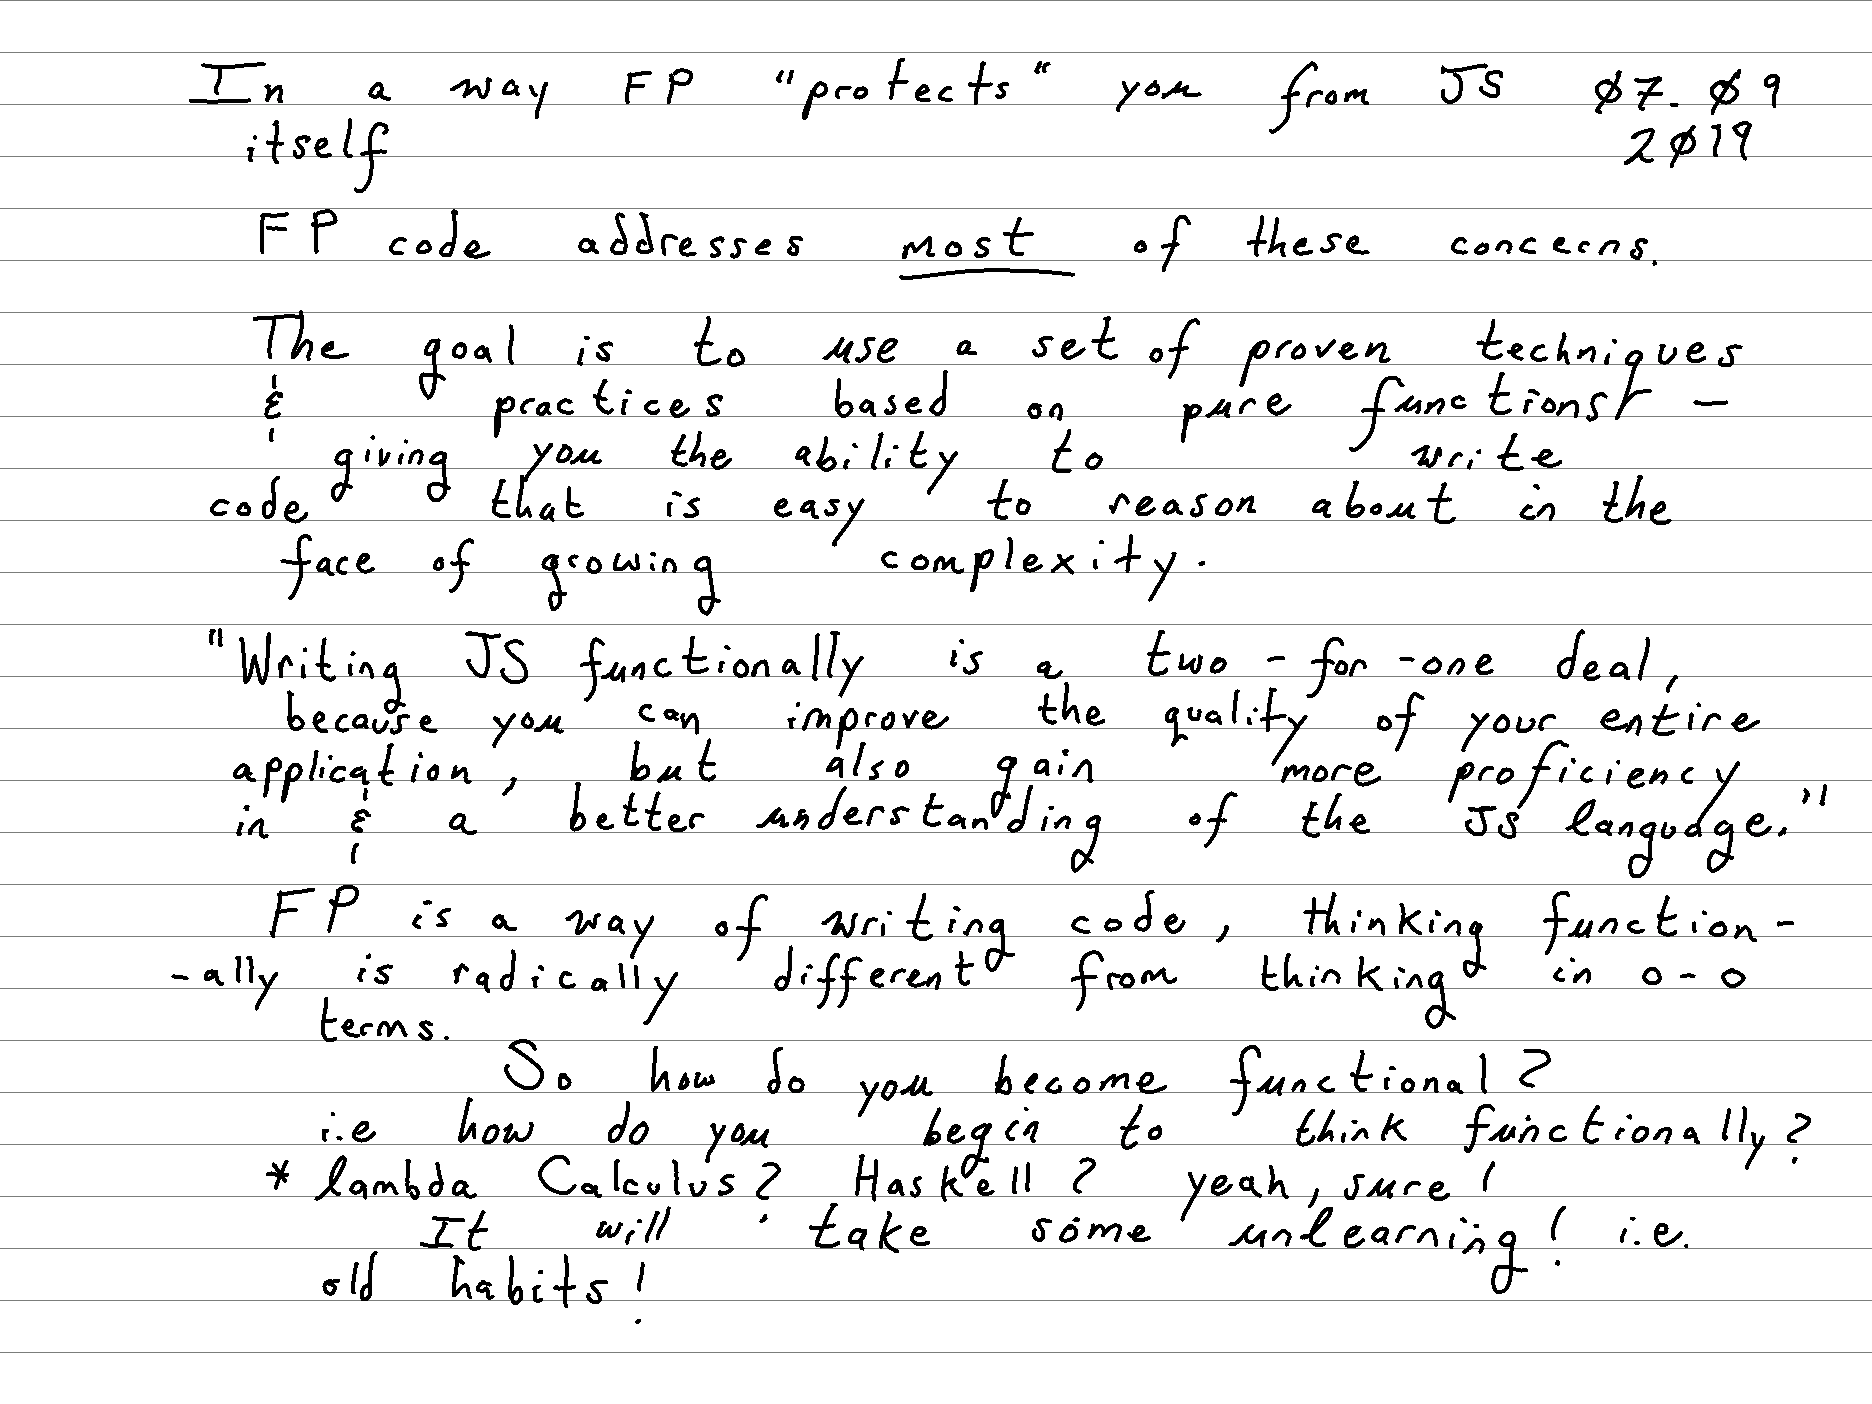 In a way FP "protects" you from JS Ø7. Ø9
itself 2Ø19
FP code addresses most of these concerns.
The goal is to use a set of proven techniques
& practices based on pure functions —
giving you the ability to write
code that is easy to reason about in the
face of growing complexity.
"Writing JS functionally is a two-for-one deal,
because you can improve the quality of your entire
application, but also gain more proficiency
in & a better understanding of the JS language."
FP is a way of writing code, thinking function-
-ally is radically different from thinking in o-o
terms.
So how do you become functional?
i.e how do you begin to think functionally?
* lambda Calculus? Haskell? yeah, sure!
It will take some unlearning! i.e.
old habits!